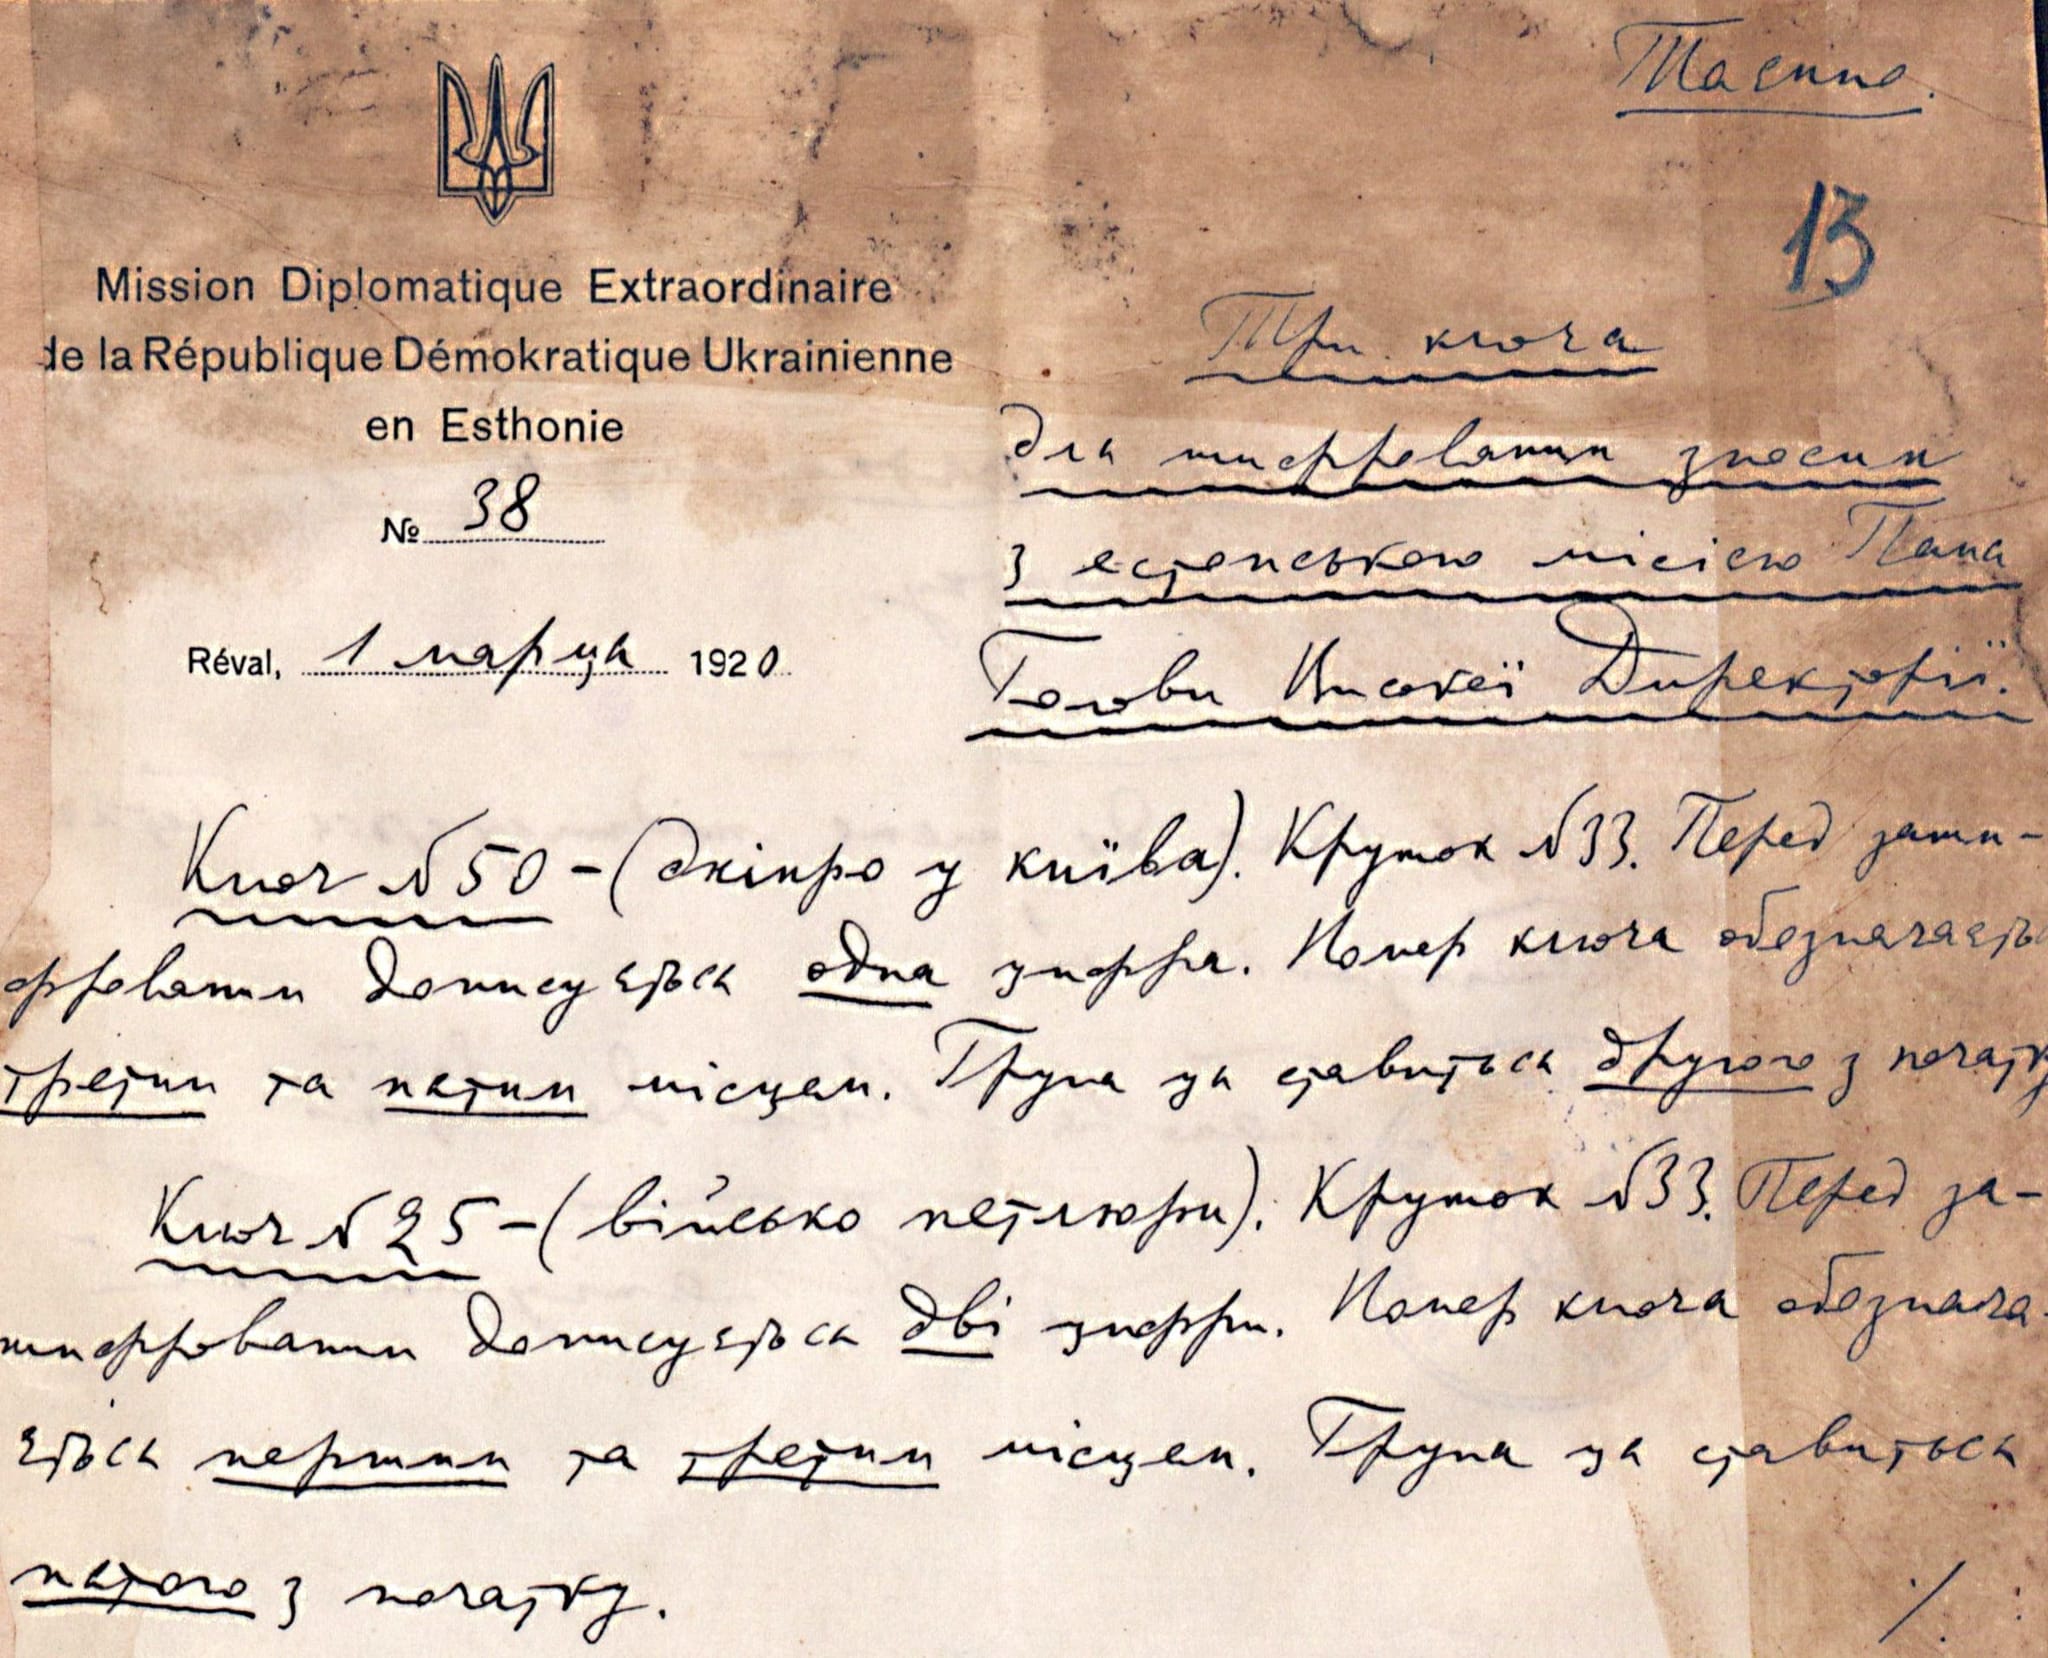 Таємно.
13
Mission Diplomatique Extraordinaire
de la République Démokratique Ukrainienne
en Esthonie
№ 38
Réval, 1 марца 1920
Три ключа
для шифровання зносин
з естонською місією Пана
Голови Високої Директорії.
Ключ №50 – (дніпро у київа). Кружок №33. Перед заши-
фрованням дописується одна цифра. Номер ключа обозначаеться
третим та пятим місцем. Група ця ставиться другою з початку
Ключ №25 – (військо петлюри). Кружок №33. Перед за-
шифрованням дописується дві цифри. Номер ключа обознача-
ється першим та третим місцем. Група ця ставиться
пятою з початку.
./.